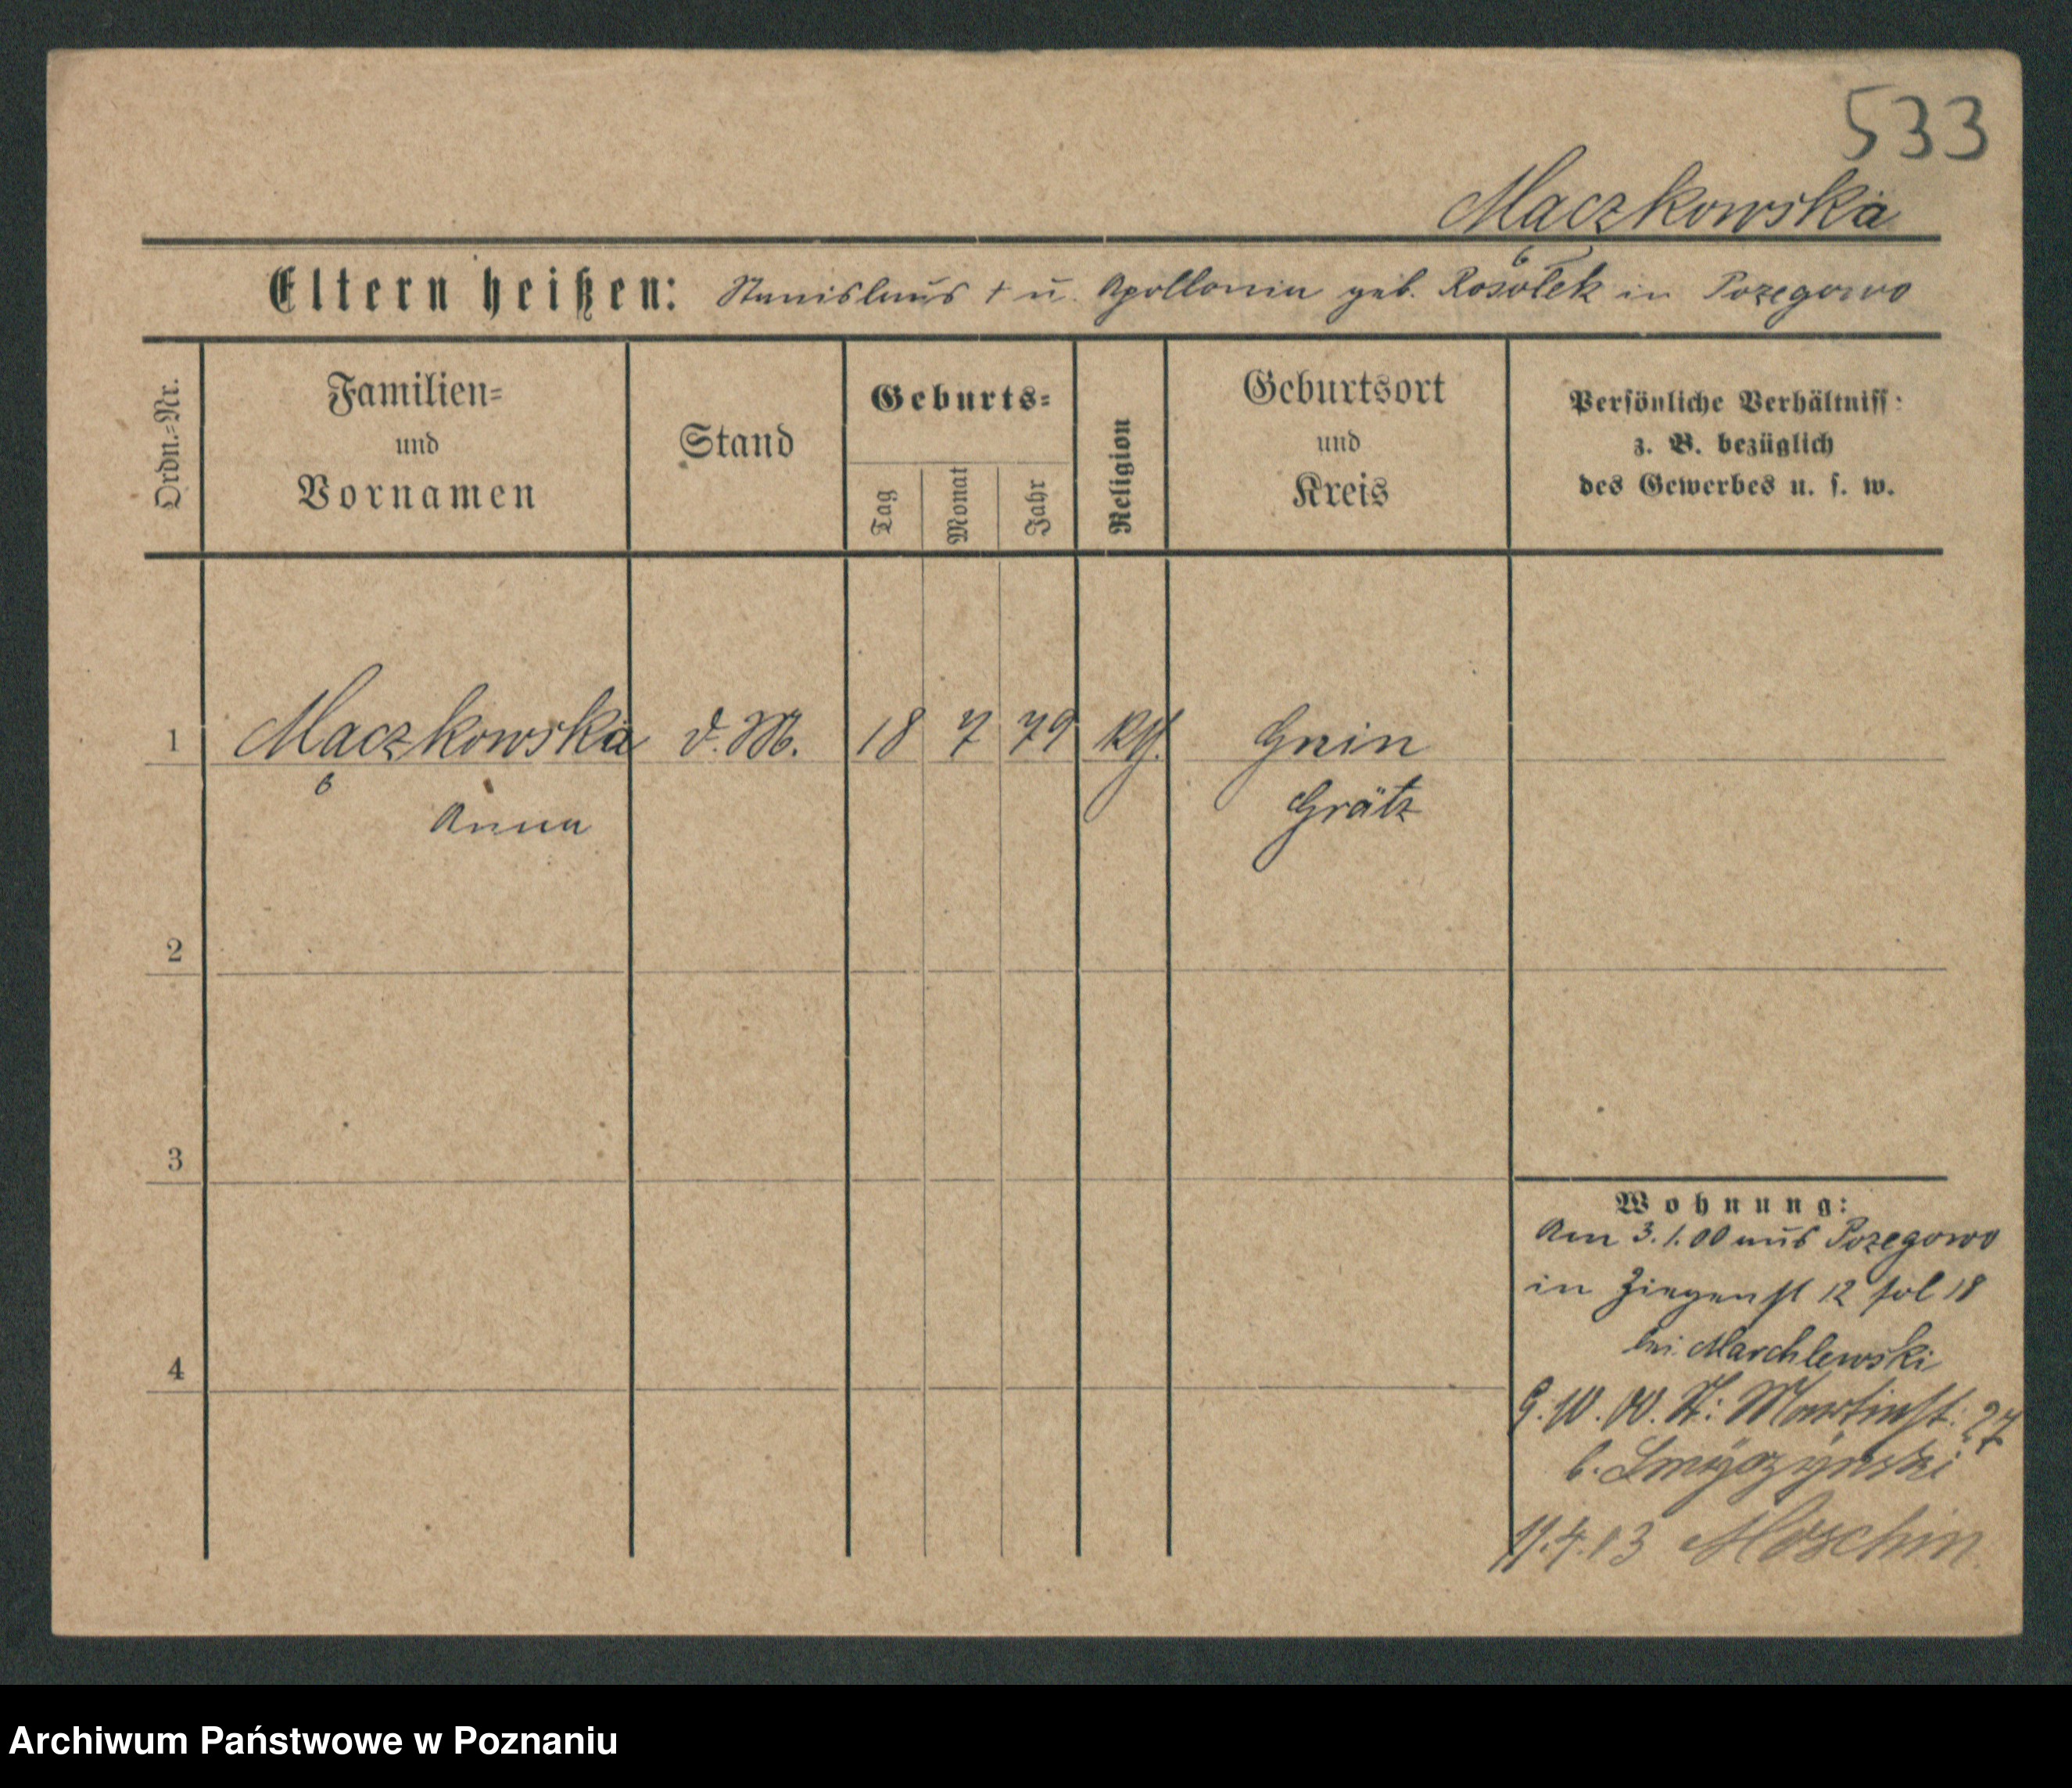 533
Maczkowska
Eltern heißen: Stanislaus † u. Apollonia geb. Rosołek in Pozegowo
Ordn.-Nr.
Familien-
und
Vornamen
Stand
Geburts-
Tag
Monat
Jahr
Religion
Geburtsort
und
Kreis
Persönliche Verhältniss:
z. B. bezüglich
des Gewerbes u. s. w.
1 Maczkowska d. M. 18 7 79 Kth. Gnin
Anna Grätz
2
3
4
Wohnung:
Am 3.1.00 aus Pozegowo
in Ziegenst 12 fol 18
bei Marchlewski
9.10.00. St: Martinst. 27
b. Smyczyński
11.4.03 Moschin
Archiwum Państwowe w Poznaniu